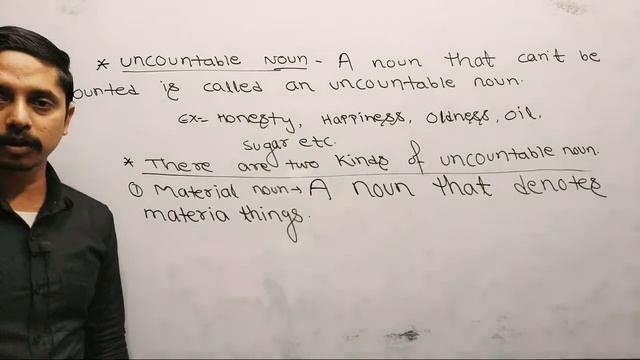 * uncountable noun - A noun that can't be
ounted is called an uncountable noun.
Ex= Honesty, Happiness, Oldness, Oil,
sugar etc.
* There are two kinds of uncountable noun.
① Material noun → A noun that denotes
materia things.